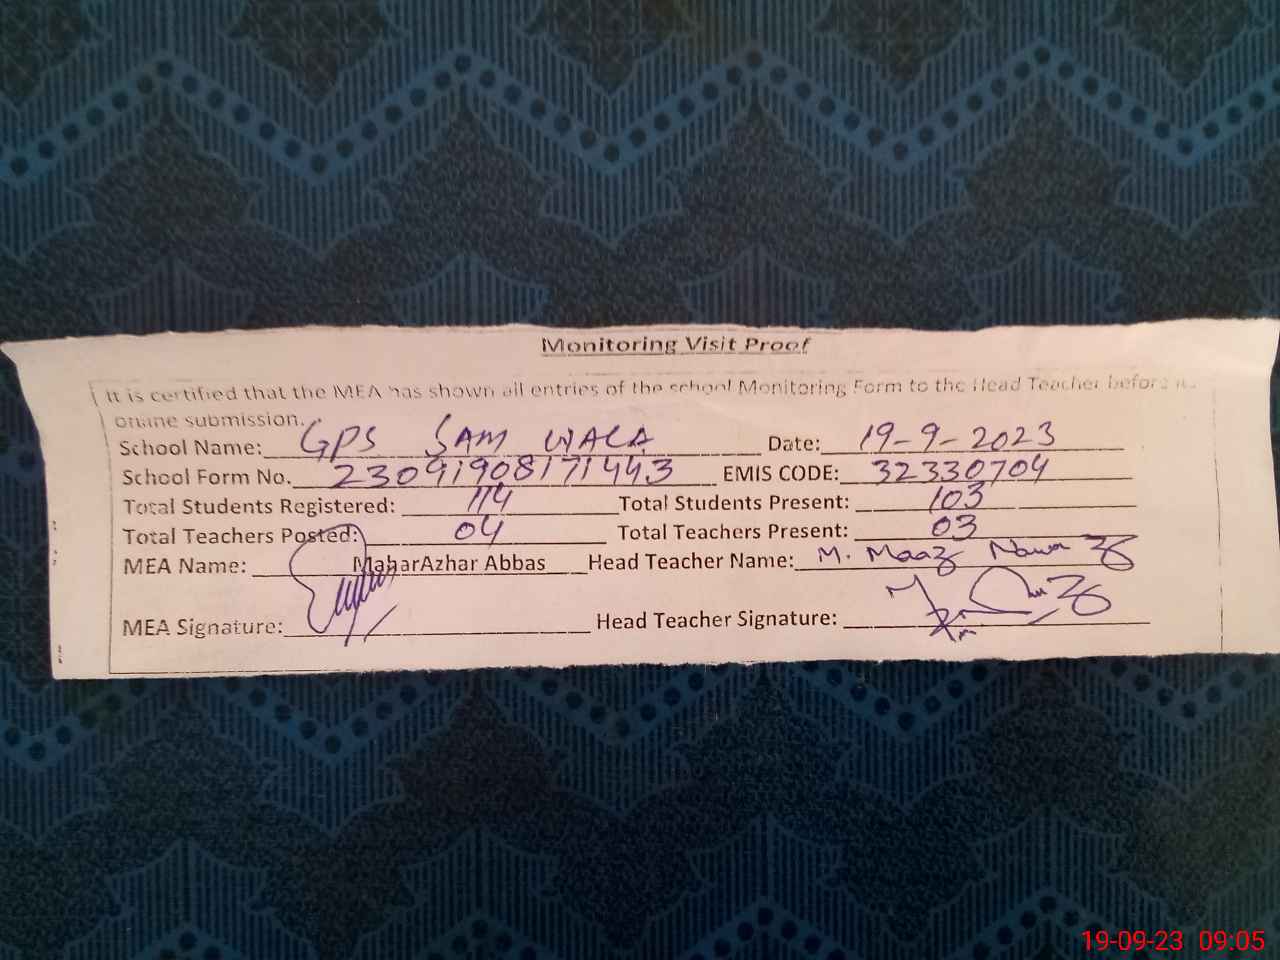 Monitoring Visit Proof
It is certified that the MEA has shown all entries of the school Monitoring Form to the Head Teacher before its
online submission.
School Name: GPS SAM WALA Date: 19-9-2023
School Form No. 23091908171443 EMIS CODE: 32330704
Total Students Registered: 114 Total Students Present: 103
Total Teachers Posted: 04 Total Teachers Present: 03
MEA Name: MaharAzhar Abbas Head Teacher Name: M. Maaz Nawaz
MEA Signature: Head Teacher Signature:
19-09-23 09:05